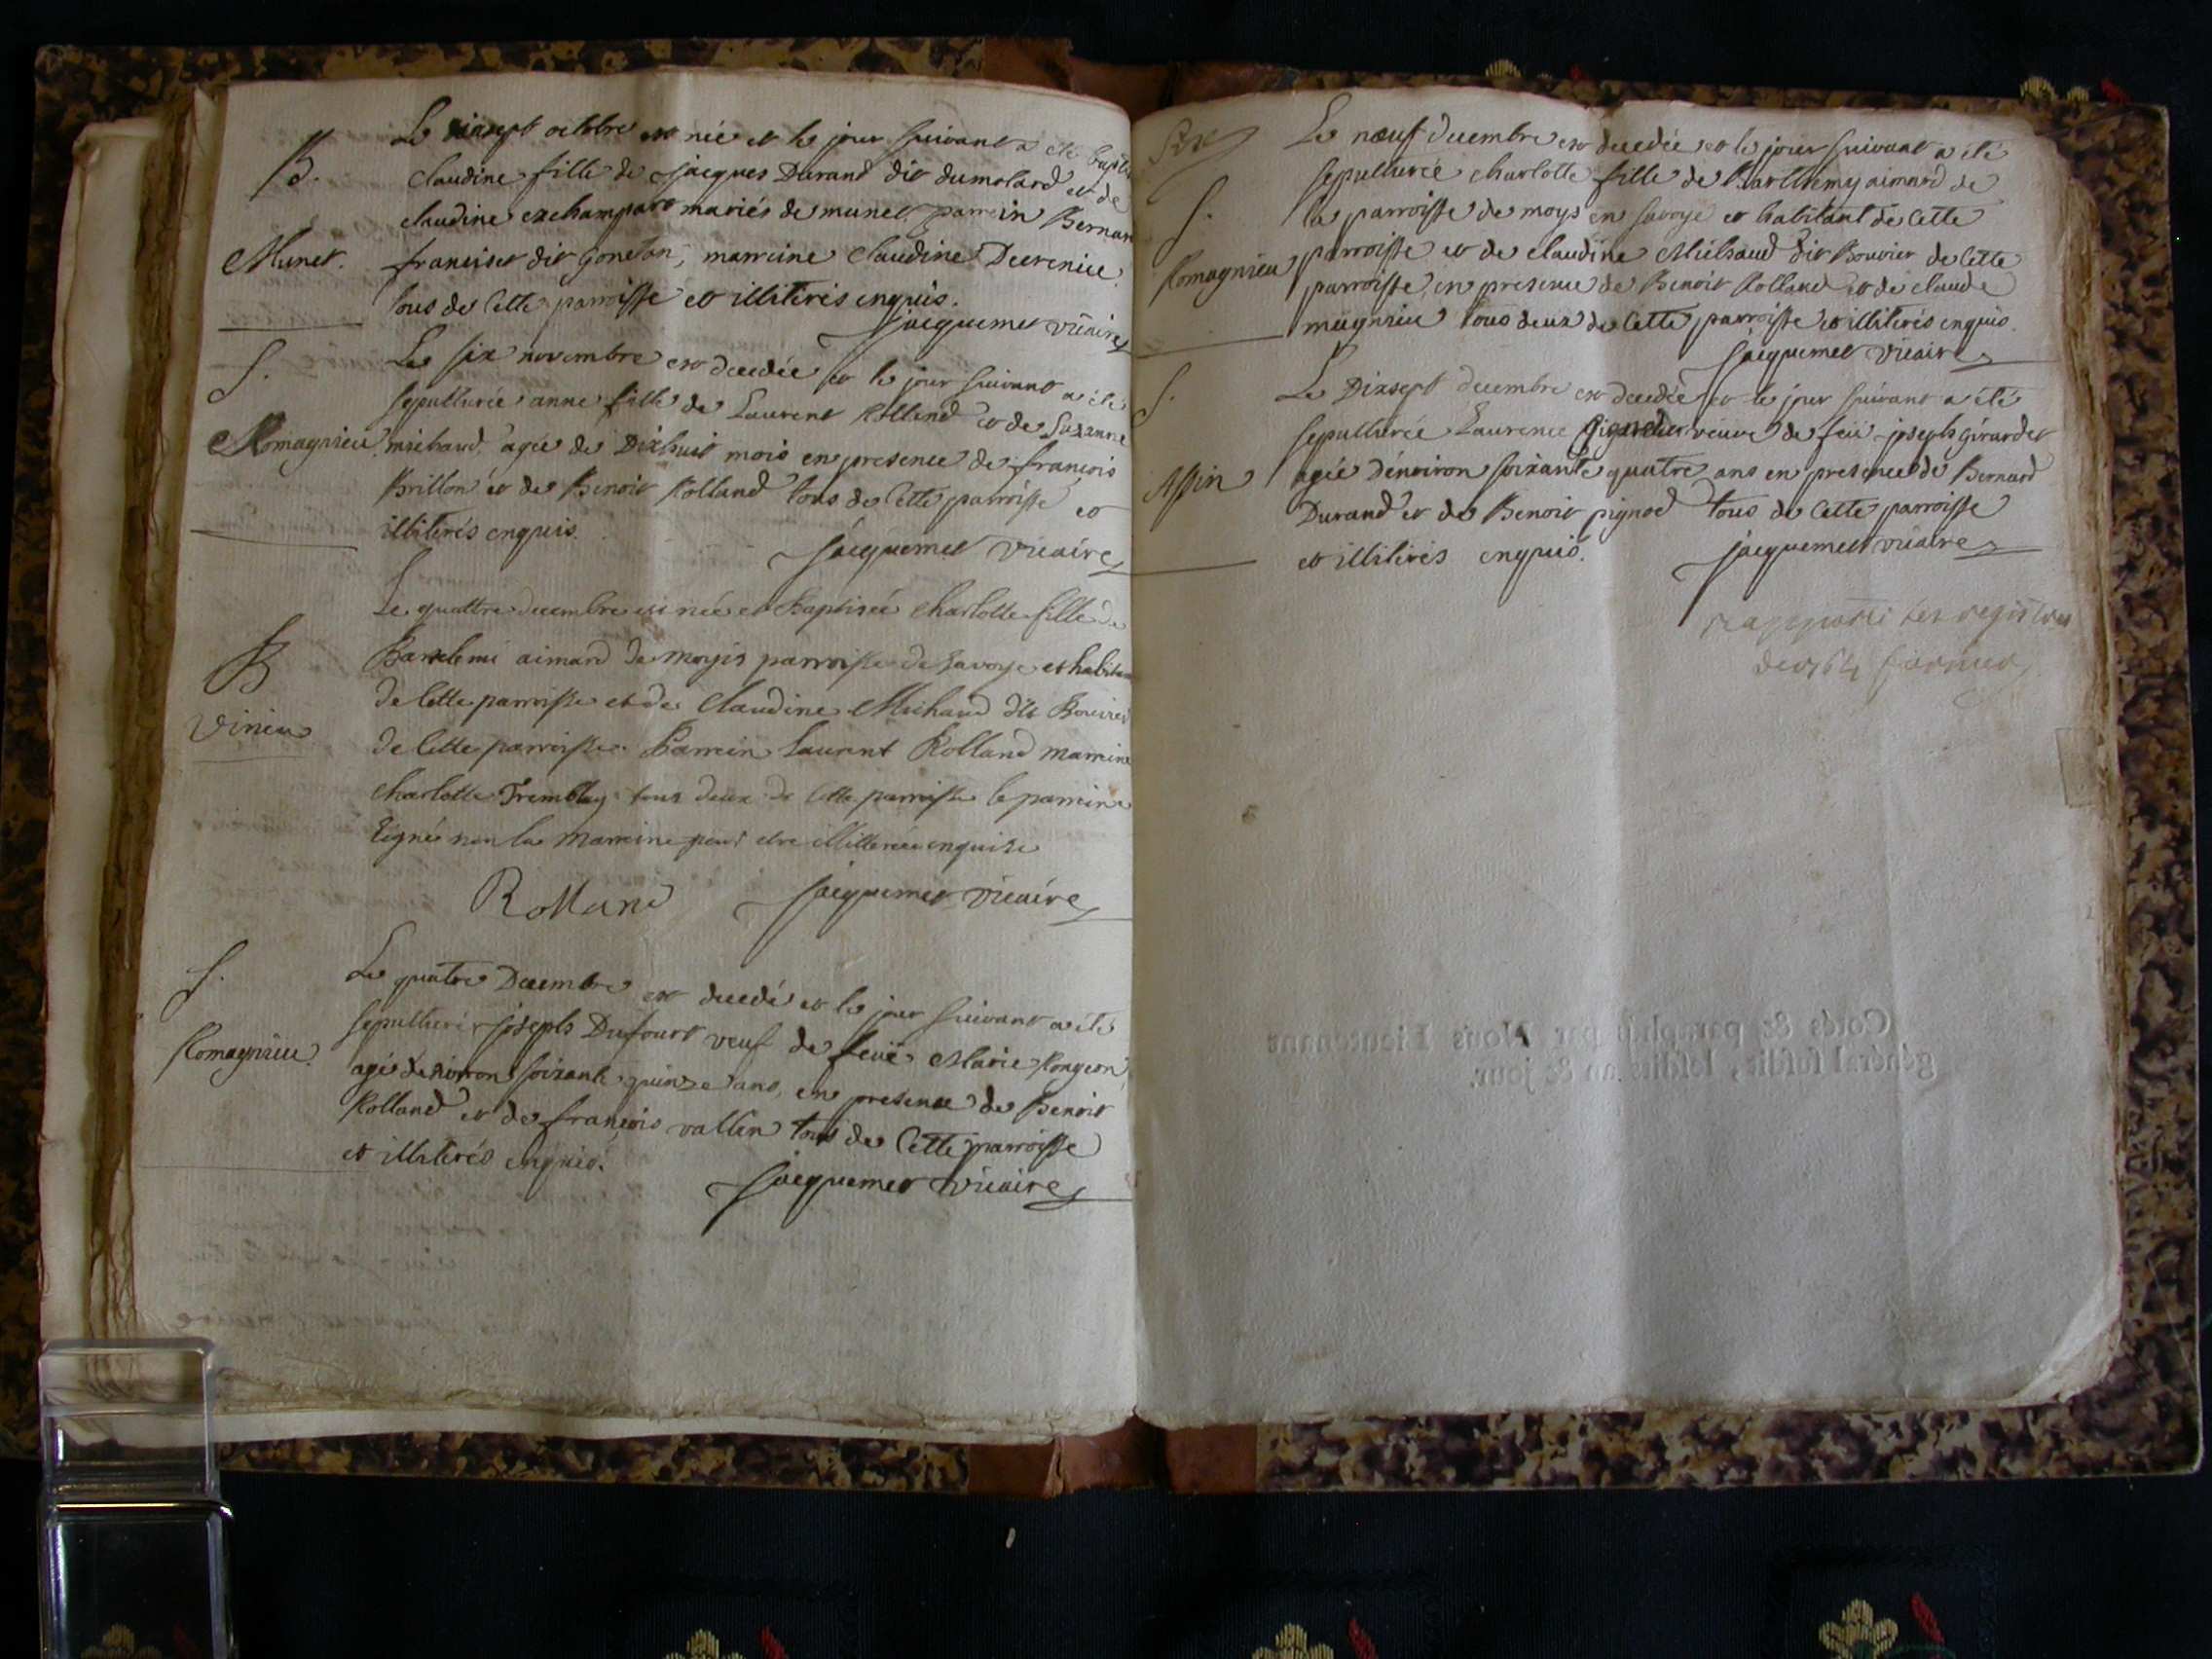 B.
Munet.
Le dixsept octobre est née et le jour suivant a eté baptisé
claudine fille de jacques Durand dit dumolard et de
claudine exchampart mariés de munet parrein Bernar
franciset dit goneton, marreine claudine Decrenice
tous de cette parroisse et illiterés enquis.
jacquemet vicaire
S.
Romagnieu
Le six novembre est decedée et le jour suivant a été
sepulturée anne fille de Laurent Rolland et de Suzanne
michaud, agée de Dixhuit mois en presence de françois
Brillon et de Benoit Rolland tous de cette parroisse et
illiterés enquis.
jacquemet vicaire
B
Vinieu
Le quattre decembre est née et Baptisée charlotte fille de
Bartelemi aimard de moyis parroisse de savoye et habitan
de cette parroisse et de Claudine Michaud dit Bouvier
de cette parroisse. Parrein Laurent Rolland marreine
charlotte Tremblay tous deux de cette parroisse le parrein a
signé non la marreine pour etre illitterée enquise
Rolland jacquemet vicaire
S.
Romagnieu.
Le quatre Decembre est decedé et le jour suivant a été
sepulturé joseph Dufourt veuf de feüe Marie Rongeon
agé denviron soixante quinze ans, en presence de Benoit
Rolland et de françois vallin tous de cette parroisse
et illiterés enquis.
jacquemet vicaire
Six
S.
Romagnieu
Le nœuf decembre est decedée et le jour suivant a été
sepulturée charlotte fille de Barthremy aimard de
la parroisse de moys en savoye et habitant de cette
parroisse et de claudine Michaud dit Bouvier de cette
parroisse, en presence de Benoit Rolland et de claude
mugnieu tous deux de cette parroisse et illiterés enquis.
jacquemet vicaire
S.
Assin
Le Dixsept decembre est decedée et le jour suivant a été
sepulturée Laurence veuve de feü joseph girardet
agée d'environ soixante quatre ans en presence de Bernard
Durand et de Benoit pignod tous de cette parroisse
et illiterés enquis.
jacquemet vicaire
rapporté les registres
de 1764
Cotés & paraphés par Nous Lieutenant
général susdit, lesdits an & jour.